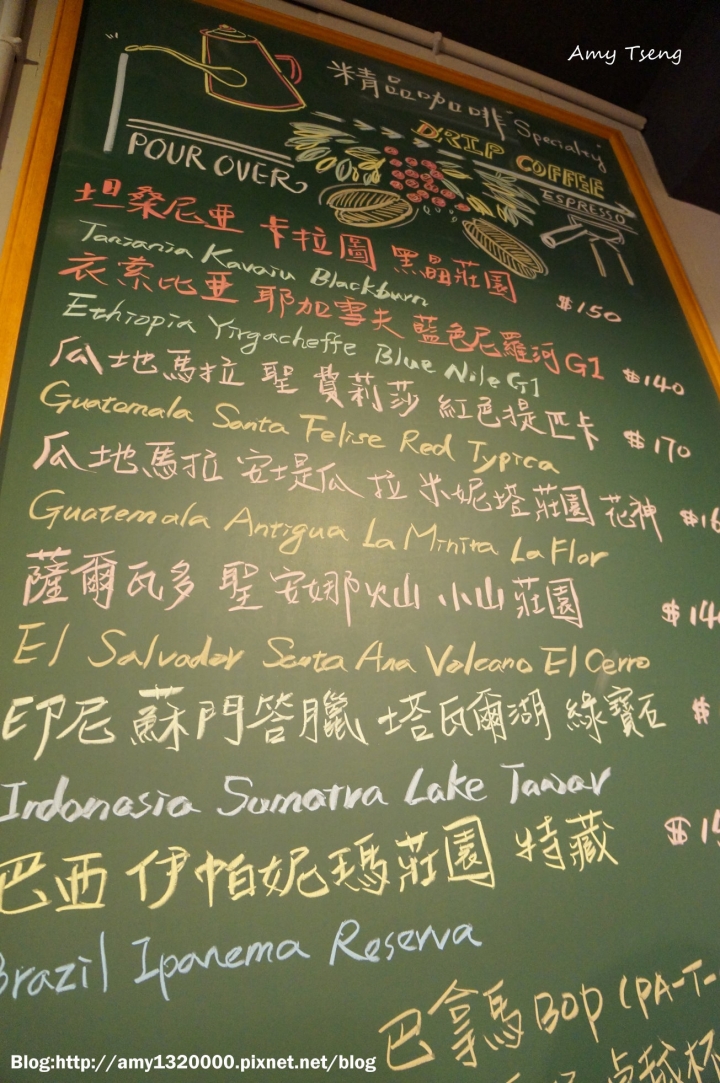 Amy Tseng
精品咖啡 Specialty
DRIP COFFEE
POUR OVER
ESPRESSO
坦桑尼亞 卡拉圖 黑晶莊園 $150
Tanzania Karatu Blackburn
衣索比亞 耶加雪夫 藍色尼羅河 G1 $140
Ethiopia Yirgacheffe Blue Nile G1
瓜地馬拉 聖費莉莎 紅色提匹卡 $170
Guatemala Santa Felise Red Typica
瓜地馬拉 安堤瓜 拉米妮塔莊園 花神
Guatemala Antigua La Minita La Flor
薩爾瓦多 聖安娜火山 小山莊園
El Salvador Santa Ana Volcano El Cerro
印尼 蘇門答臘 塔瓦爾湖 綠寶石 $
Indonasia Sumatra Lake Tawar
巴西 伊帕妮瑪莊園 特藏
Brazil Ipanema Reserva
巴拿馬 BOP (PA-T-
Blog:http://amy1320000.pixnet.net/blog